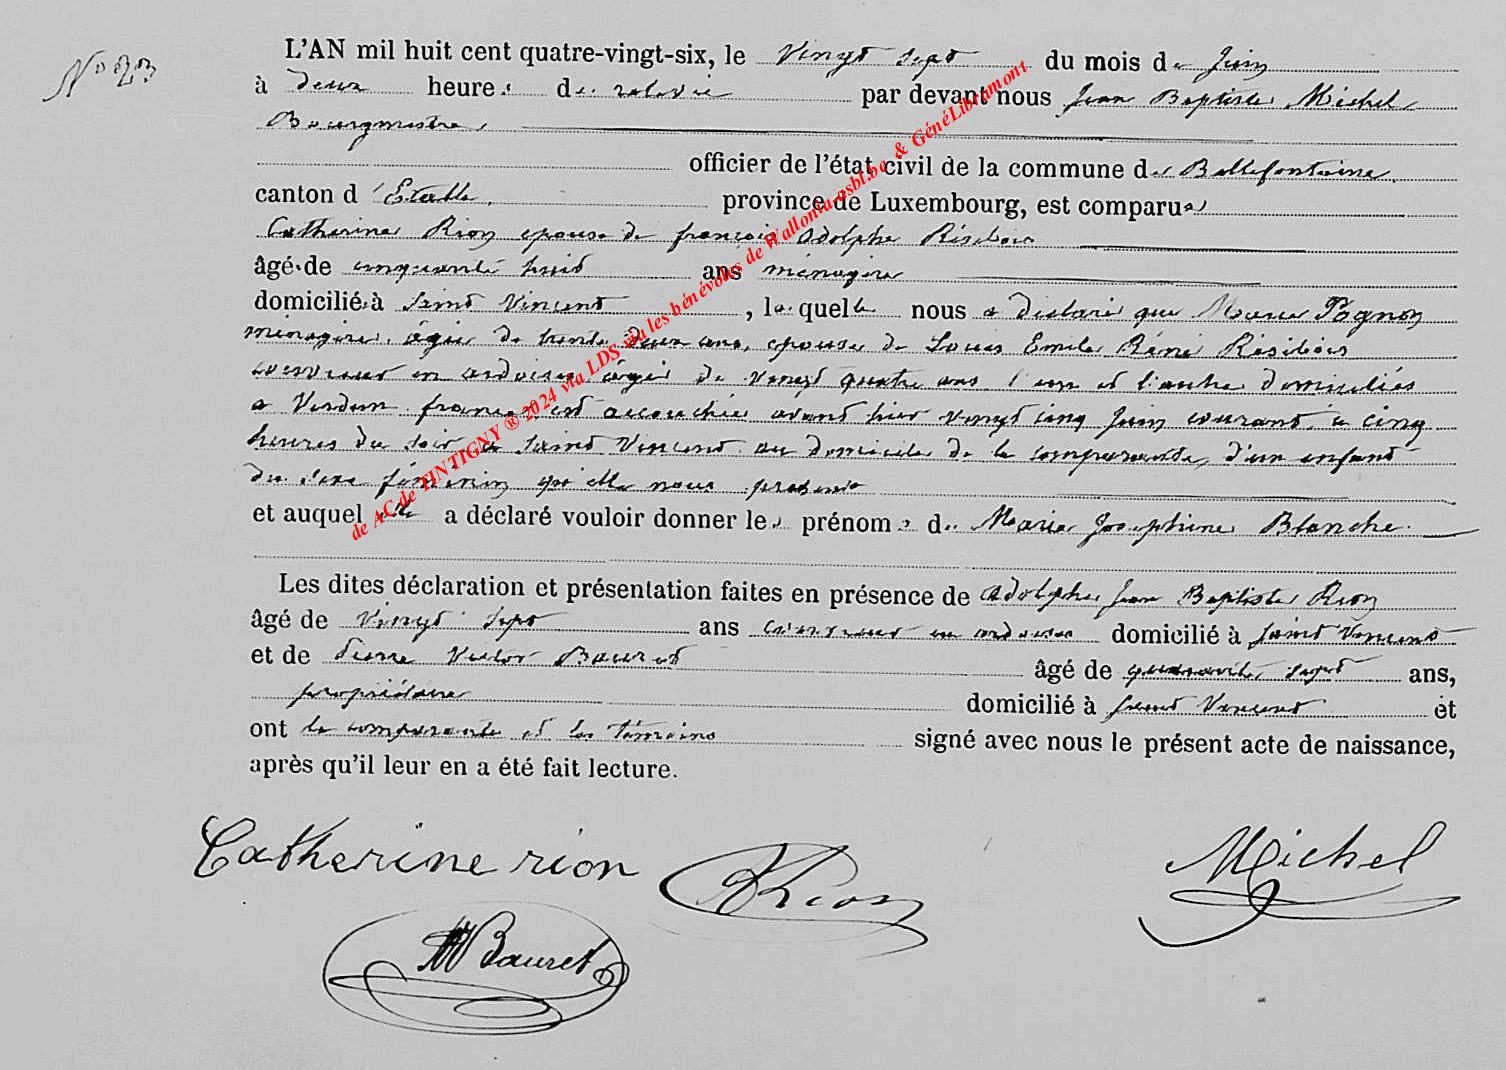 N° 23
L'AN mil huit cent quatre-vingt-six, le vingt sept du mois de Juin
à deux heures de relevée par devant nous Jean Baptiste Michel
Bourgmestre,
officier de l'état civil de la commune de Bellefontaine,
canton d'Etalle, province de Luxembourg, est comparue
Catherine Rion epouse de françois Adolphe Résibois
âgé de cinquante huit ans ménagère
domicilié à Saint Vincent, laquelle nous a déclaré que Marie Pognon
ménagère, agée de trente deux ans, epouse de Louis Emile Réné Résibois
couvreur en ardoises, âgé de vingt quatre ans l'un et l'autre domiciliés
a Verdun france est accouchée avant hier vingt cinq Juin courant, à cinq
heures du soir à Saint Vincent au domicile de la comparante, d'un enfant
du sexe féminin qu'elle nous présente
et auquel elle a déclaré vouloir donner les prénoms de Marie Josephine Blanche.
Les dites déclaration et présentation faites en présence de Adolphe Jean Baptiste Rion
âgé de vingt sept ans couvreur en ardoises domicilié à Saint Vincent
et de Pierre Victor Bauret âgé de quarante sept ans,
propriétaire domicilié à Saint Vincent et
ont la comparante et les témoins signé avec nous le présent acte de naissance,
après qu'il leur en a été fait lecture.
Catherine rion
Rion
Michel
Bauret
de AC de TINTIGNY ® 2024 via LDS via les bénévoles de Wallonia.asbl.be & GénéLibramont